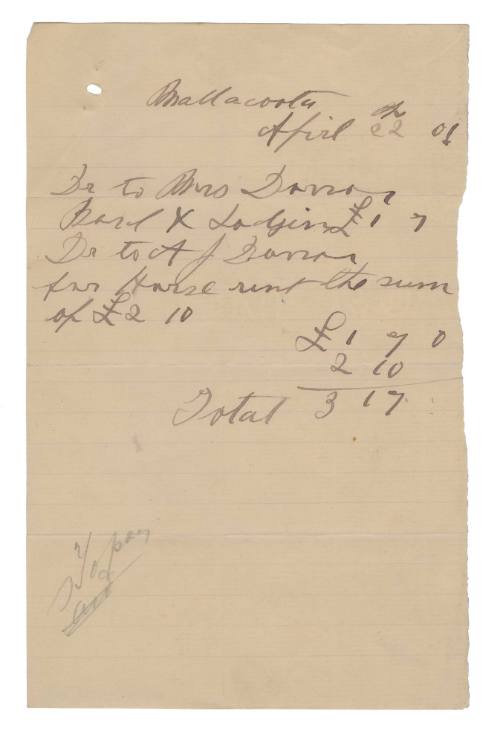 Mallacoota
April 22nd 01
Dr to Mrs Dorran
Bord & Lodgin £1 7
Dr to A J Dorran
for Horse rint the sum
of £2 10
£ 1 7 0
2 10
Total 3 17
to pay